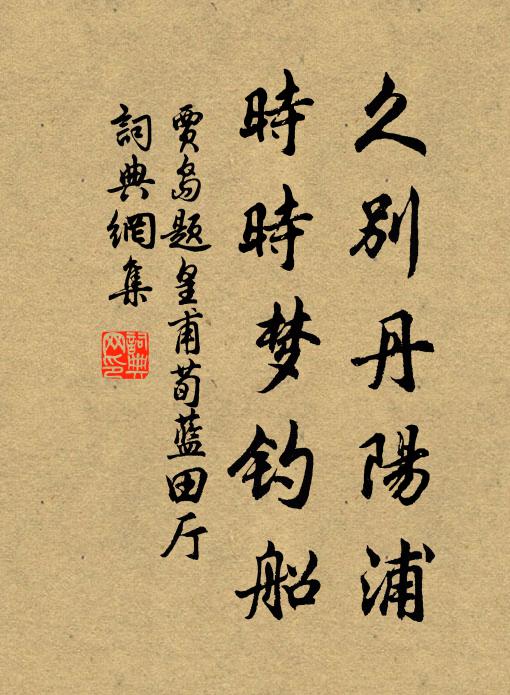 久别丹陽浦
時時梦钓船
賈岛题皇甫荀蓝田厅
詞典網集
詞典网印